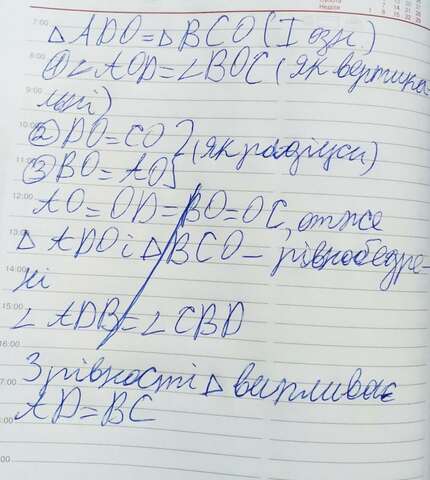 △ADO=△BCO(I озн.)
①∠AOD=∠BOC(як вертика-
льні)
②DO=CO
③BO=AO} (як радіуси)
AO=OD=BO=OC, отже
△ADO і △BCO – рівнобедре-
ні
∠ADB=∠CBD
З рівності △ випливає
AD=BC
7:00
8:00
9:00
10:00
11:00
12:00
13:00
14:00
15:00
16:00
17:00